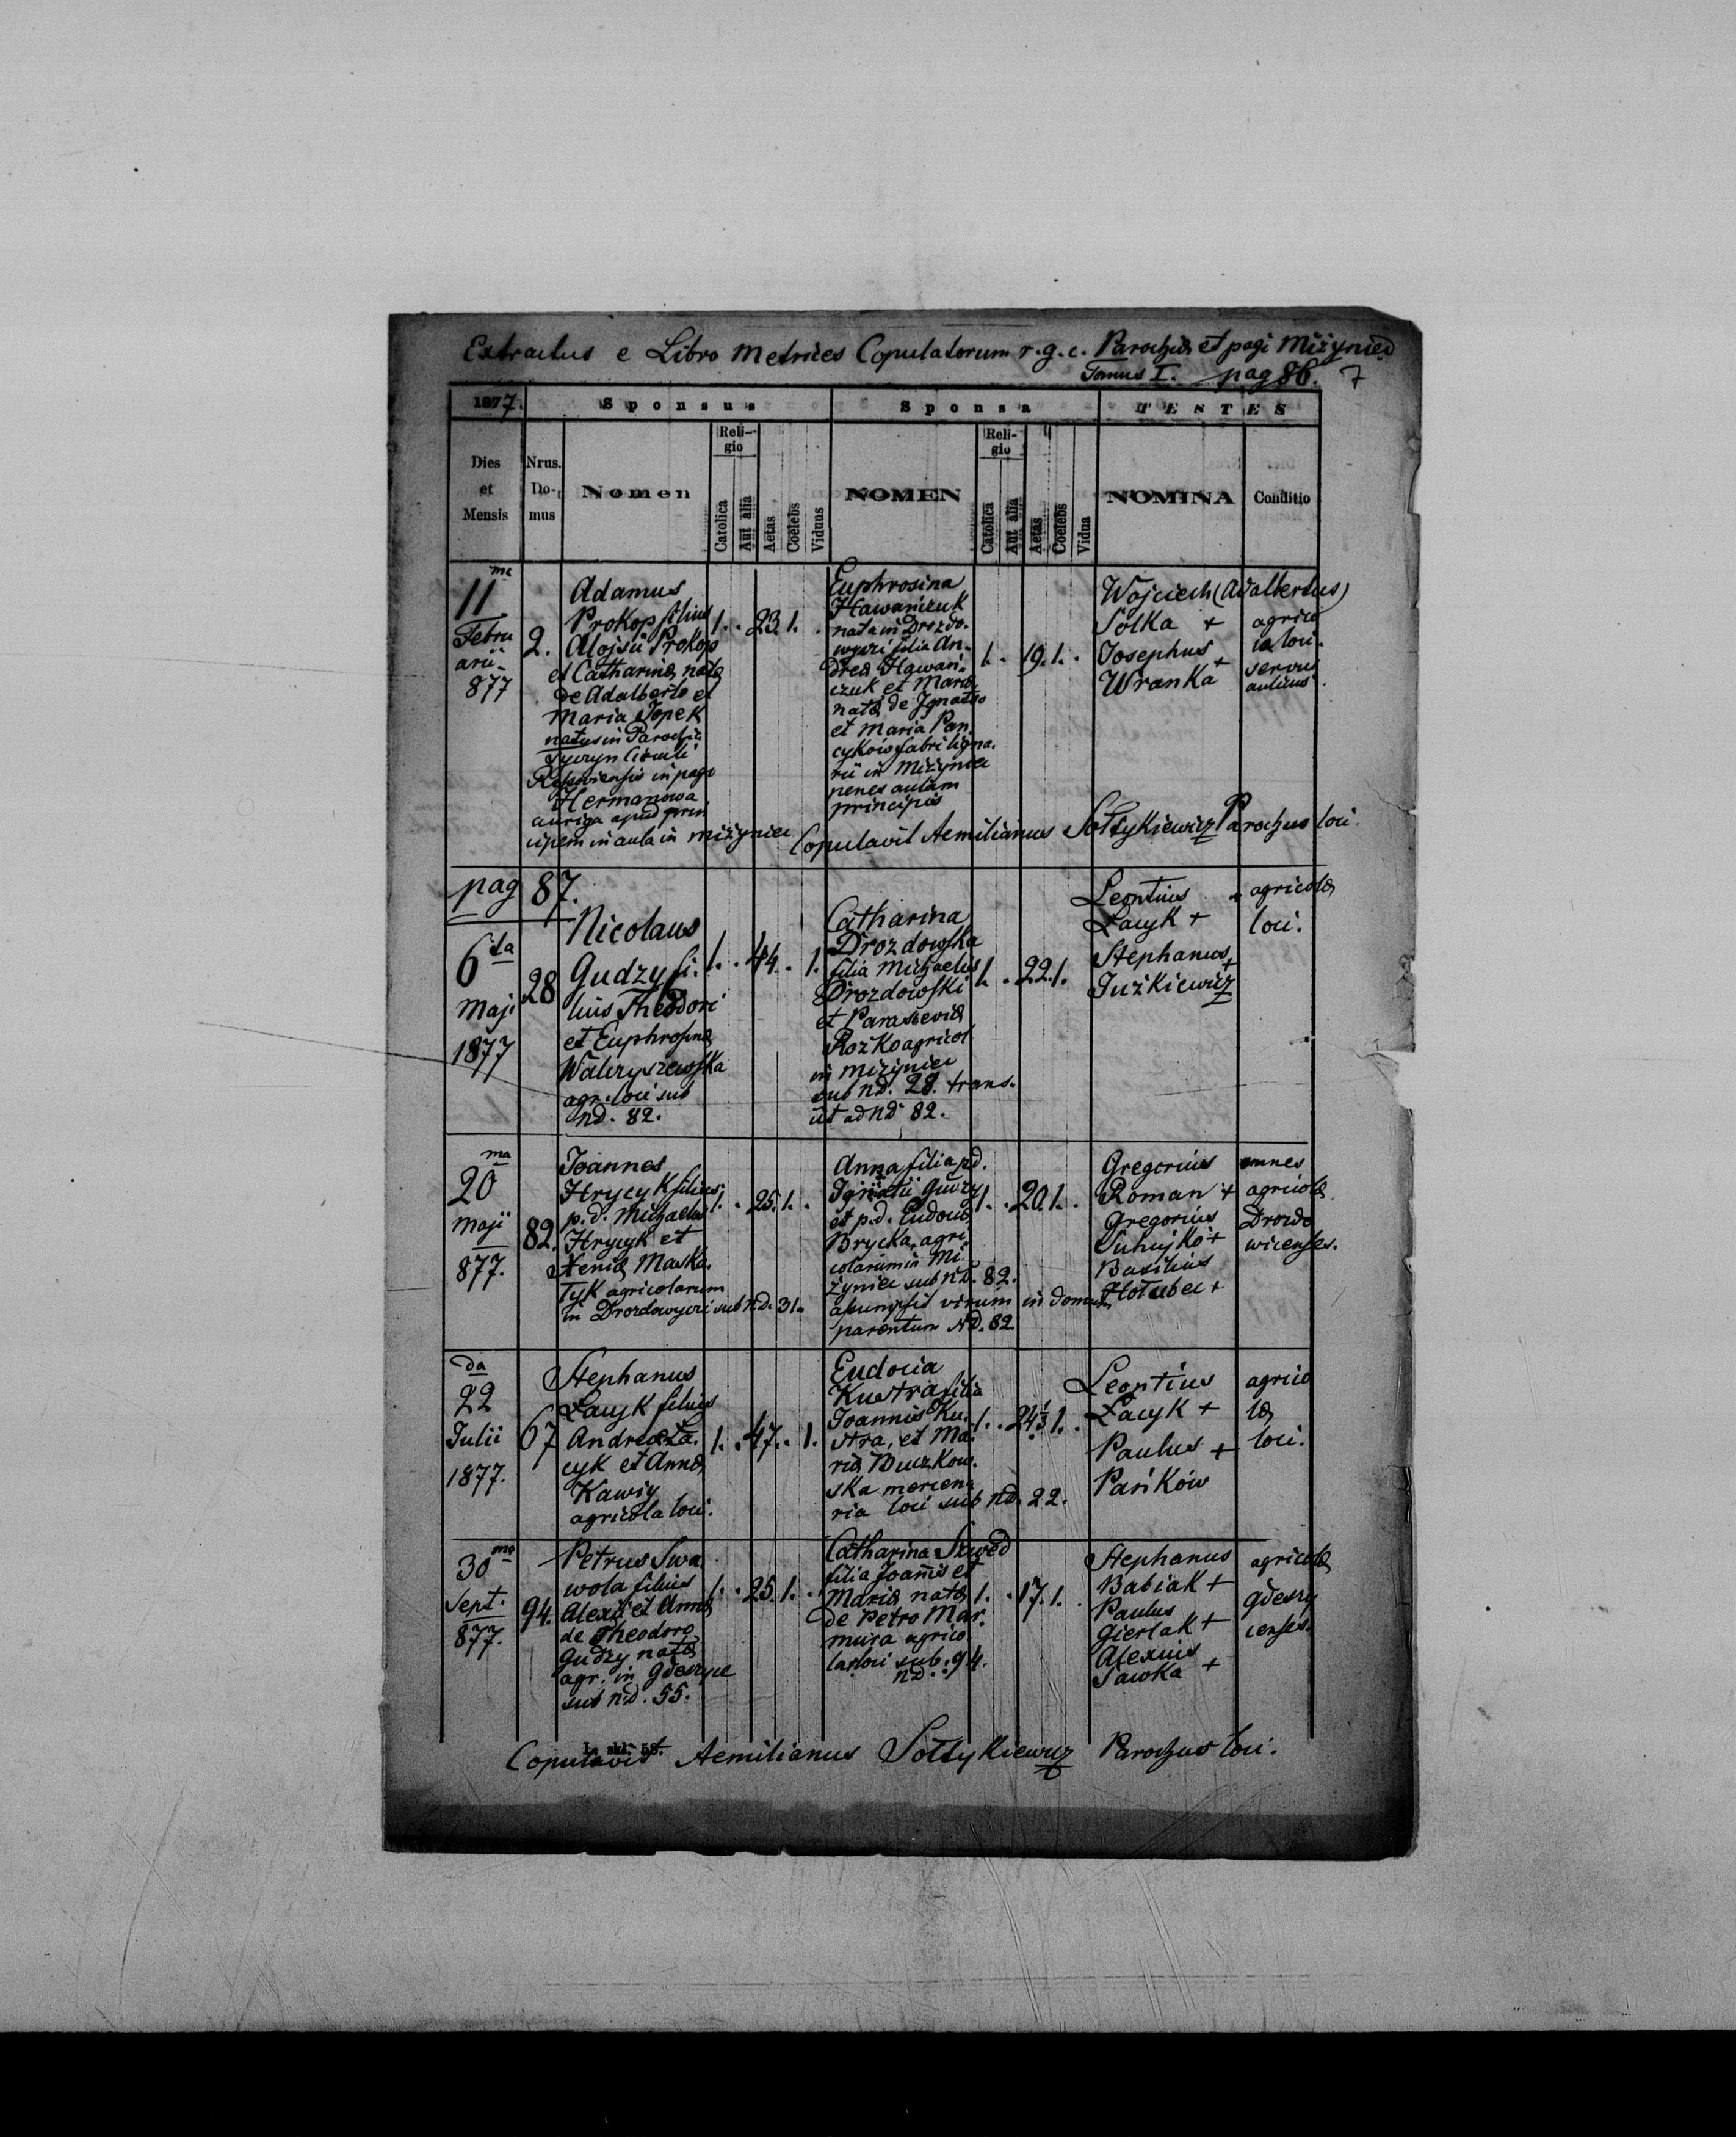 Extractus e Libro Metrices Copulatorum r.g.c. Parochiæ et pagi Miżyniec
Tomus I. pag 86. 7
1877. Sponsus Sponsa TESTES
Dies et Mensis
Nrus. Domus
Nomen
Religio
Catolica
Aut alia
Aetas
Coelebs
Viduus
NOMEN
Religio
Catolica
Aut alia
Aetas
Coelebs
Vidua
NOMINA
Conditio
11 ma
Febru
arii
877
2.
Adamus
Prokop filius
Aloisii Prokop
et Catharinæ natæ
de Adalberto et
Maria Topek
natus in Parochia
Tyczyn Circuli
in pago
Hermanowa
auriga apud prin
cipem in aula in Miżyniec
1. . 23. 1. .
Euphrosina
Hawańczuk
nata in Drozdo.
wyczi filia An.
dreæ Hawań.
czuk et Mariæ
natæ de Ignatio
et Maria Pań
cyków fabri ligna.
rii in Miżyniec
penes aulam
principis
1. . 19. 1. .
Wojciech (Adalbertus)
Solka +
Josephus
Wranka +
agrico
la loci.
servus
aulicus
Copulavit Aemilianus Sołtykiewicz Parochus loci.
pag 87.
6 ta
Maji
1877
28
Nicolaus
Gudzy fi.
lius Theodori
et Euphrosinæ
agr. loci sub
nd. 82.
1. . 44. . 1.
Catharina
Drozdowska
filia Michaelis
Drozdowski
et Parasceviæ
Rozko agricol
in Miżyniec
sub nd. 28. trans.
iit ad nd 82.
1. . 22. 1.
Leontius +
Łacyk +
Stephanus +
Juzkiewicz
agricolæ
loci.
20 ma
Maji
877.
82.
Joannes
Hrycyk filius
p.d. Michaelis
Hrycyk et
Xeniæ Maska.
tyk agricolarum
in Drozdowyczi sub nd. 31.
1. . 25. 1. .
Anna filia p.d.
Ignatii Gudzy
et p.d. Eudociæ
Brycka, agri.
colarum in Mi
żyniec sub nd. 82.
asumpsit virum in domum
parentum Nd. 82
1. . 20. 1. .
Gregorius
Roman +
Gregorius
Suhujko +
Basilius
Hołubec +
omnes
agricolæ
Drozdo
wicenses.
22 da
Julii
1877.
67
Stephanus
Łacyk filius
Andreæ Ła.
cyk et Annæ
Kawiy
agricola loci.
1. . 47. . 1.
Eudocia
Kustra filia
Joannis Ku.
stra, et Ma.
riæ Buczkow.
ska mercena
ria loci sub nd. 22.
1. . 24 1/3 1. .
Leontius
Łacyk +
Paulus +
Pańków
agrico
læ
loci.
30 ma
Sept.
877.
94.
Petrus Swa
wola filius
Alexii et Annæ
de Theodoro
Gudzy natæ
agr. in Gdeszyce
sub nd. 55.
1. . 25. 1. .
Catharina Szwed
filia Joannis et
Mariæ natæ
de Petro Mar.
mura agrico.
læ loci sub
nd. 94.
1. . 17. 1. .
Stephanus
Babiak +
Paulus
Gierlak +
Alexius
Sawka +
agricolæ
Gdeszy
censes.
L. skł. 58.
Copulavit Aemilianus Sołtykiewicz Parochus loci.